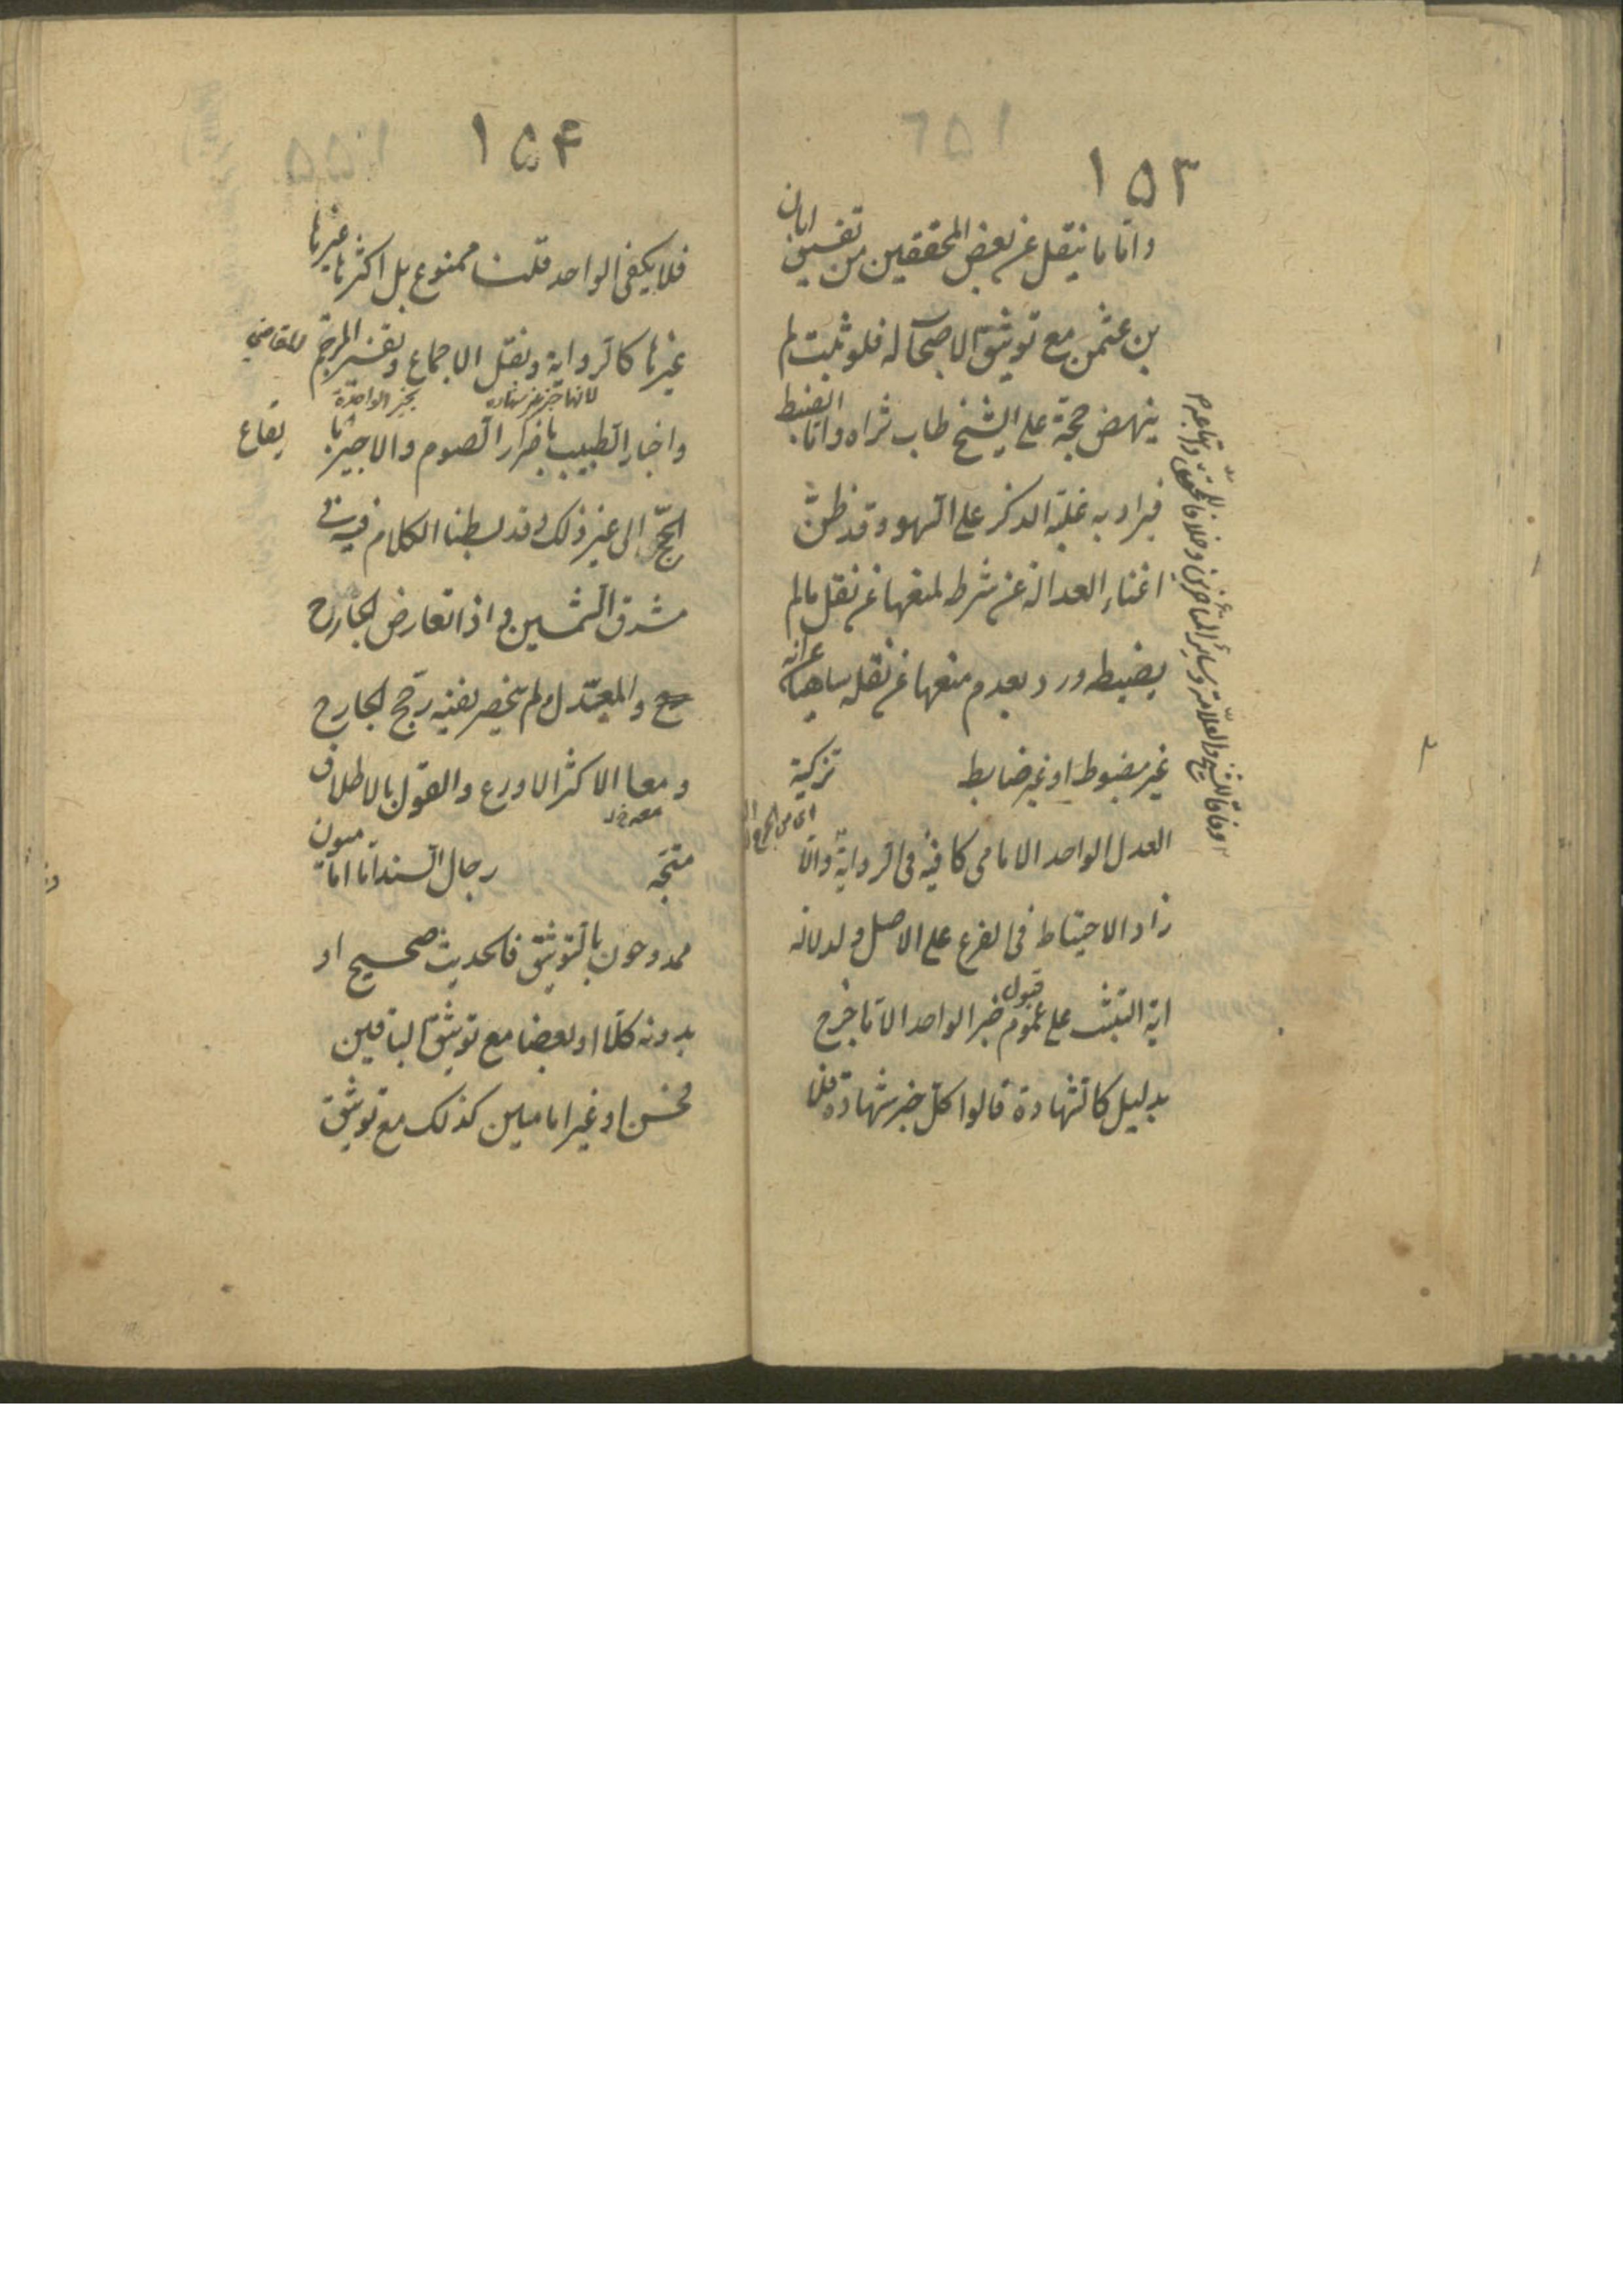 ١٥٣
واما ما ينقل عن بعض المحققين من تفسيق ابان
بن عثمن مع توثيق الاصحاب له فلو ثبت لم
ينهض حجة على الشيخ طاب ثراه واما الضبط
فيراد به غلبة الذكر على السهو وقد ظن
اغناء العدالة عن شرطه لمنعها عن نقل ما لم
يضبطه ورد بعدم منعها عن نقله ساهيا عن انه
غير مضبوط او غير ضابط تزكية
العدل الواحد الامامي كافية في الرواية والا
زاد الاحتياط في الفرع على الاصل ولدلالة
اية التثبت على عموم قبول خبر الواحد الا ما خرج
بدليل كالشهادة قالوا كل خبر شهادة قلنا
وفاقا للشيخ والعلامة وساير المتأخرين وخلافا للمحقق واتباعه
١٥۴
فلا يكفي الواحد قلت ممنوع بل اكثرها غيرها
غيرها كالرواية ونقل الاجماع وتفسير المترجم للقاضي
واخبار الطبيب باضرار الصوم والاجير بايقاع
الحج الى غير ذلك وقد بسطنا الكلام فيه في
مشرق الشمسين واذا تعارض الجارح
والمعدل ولم ينحصر نفيه رجح الجارح
ومعا الاكثر الاورع والقول بالاطلاق
متجه رجال السند اما اماميون
ممدوحون بالتوثيق فالحديث صحيح او
بدونه كلا او بعضا مع توثيق الباقين
فحسن او غير اماميين كذلك مع توثيق